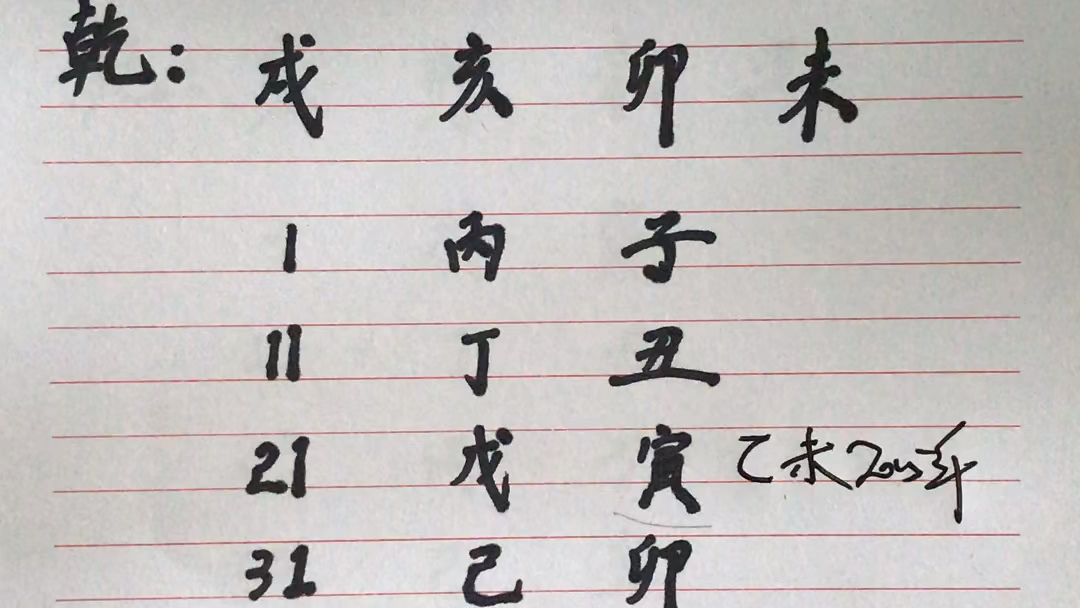 乾: 戌 亥 卯 未
1 丙 子
11 丁 丑
21 戊 寅 乙未2015年
31 己 卯